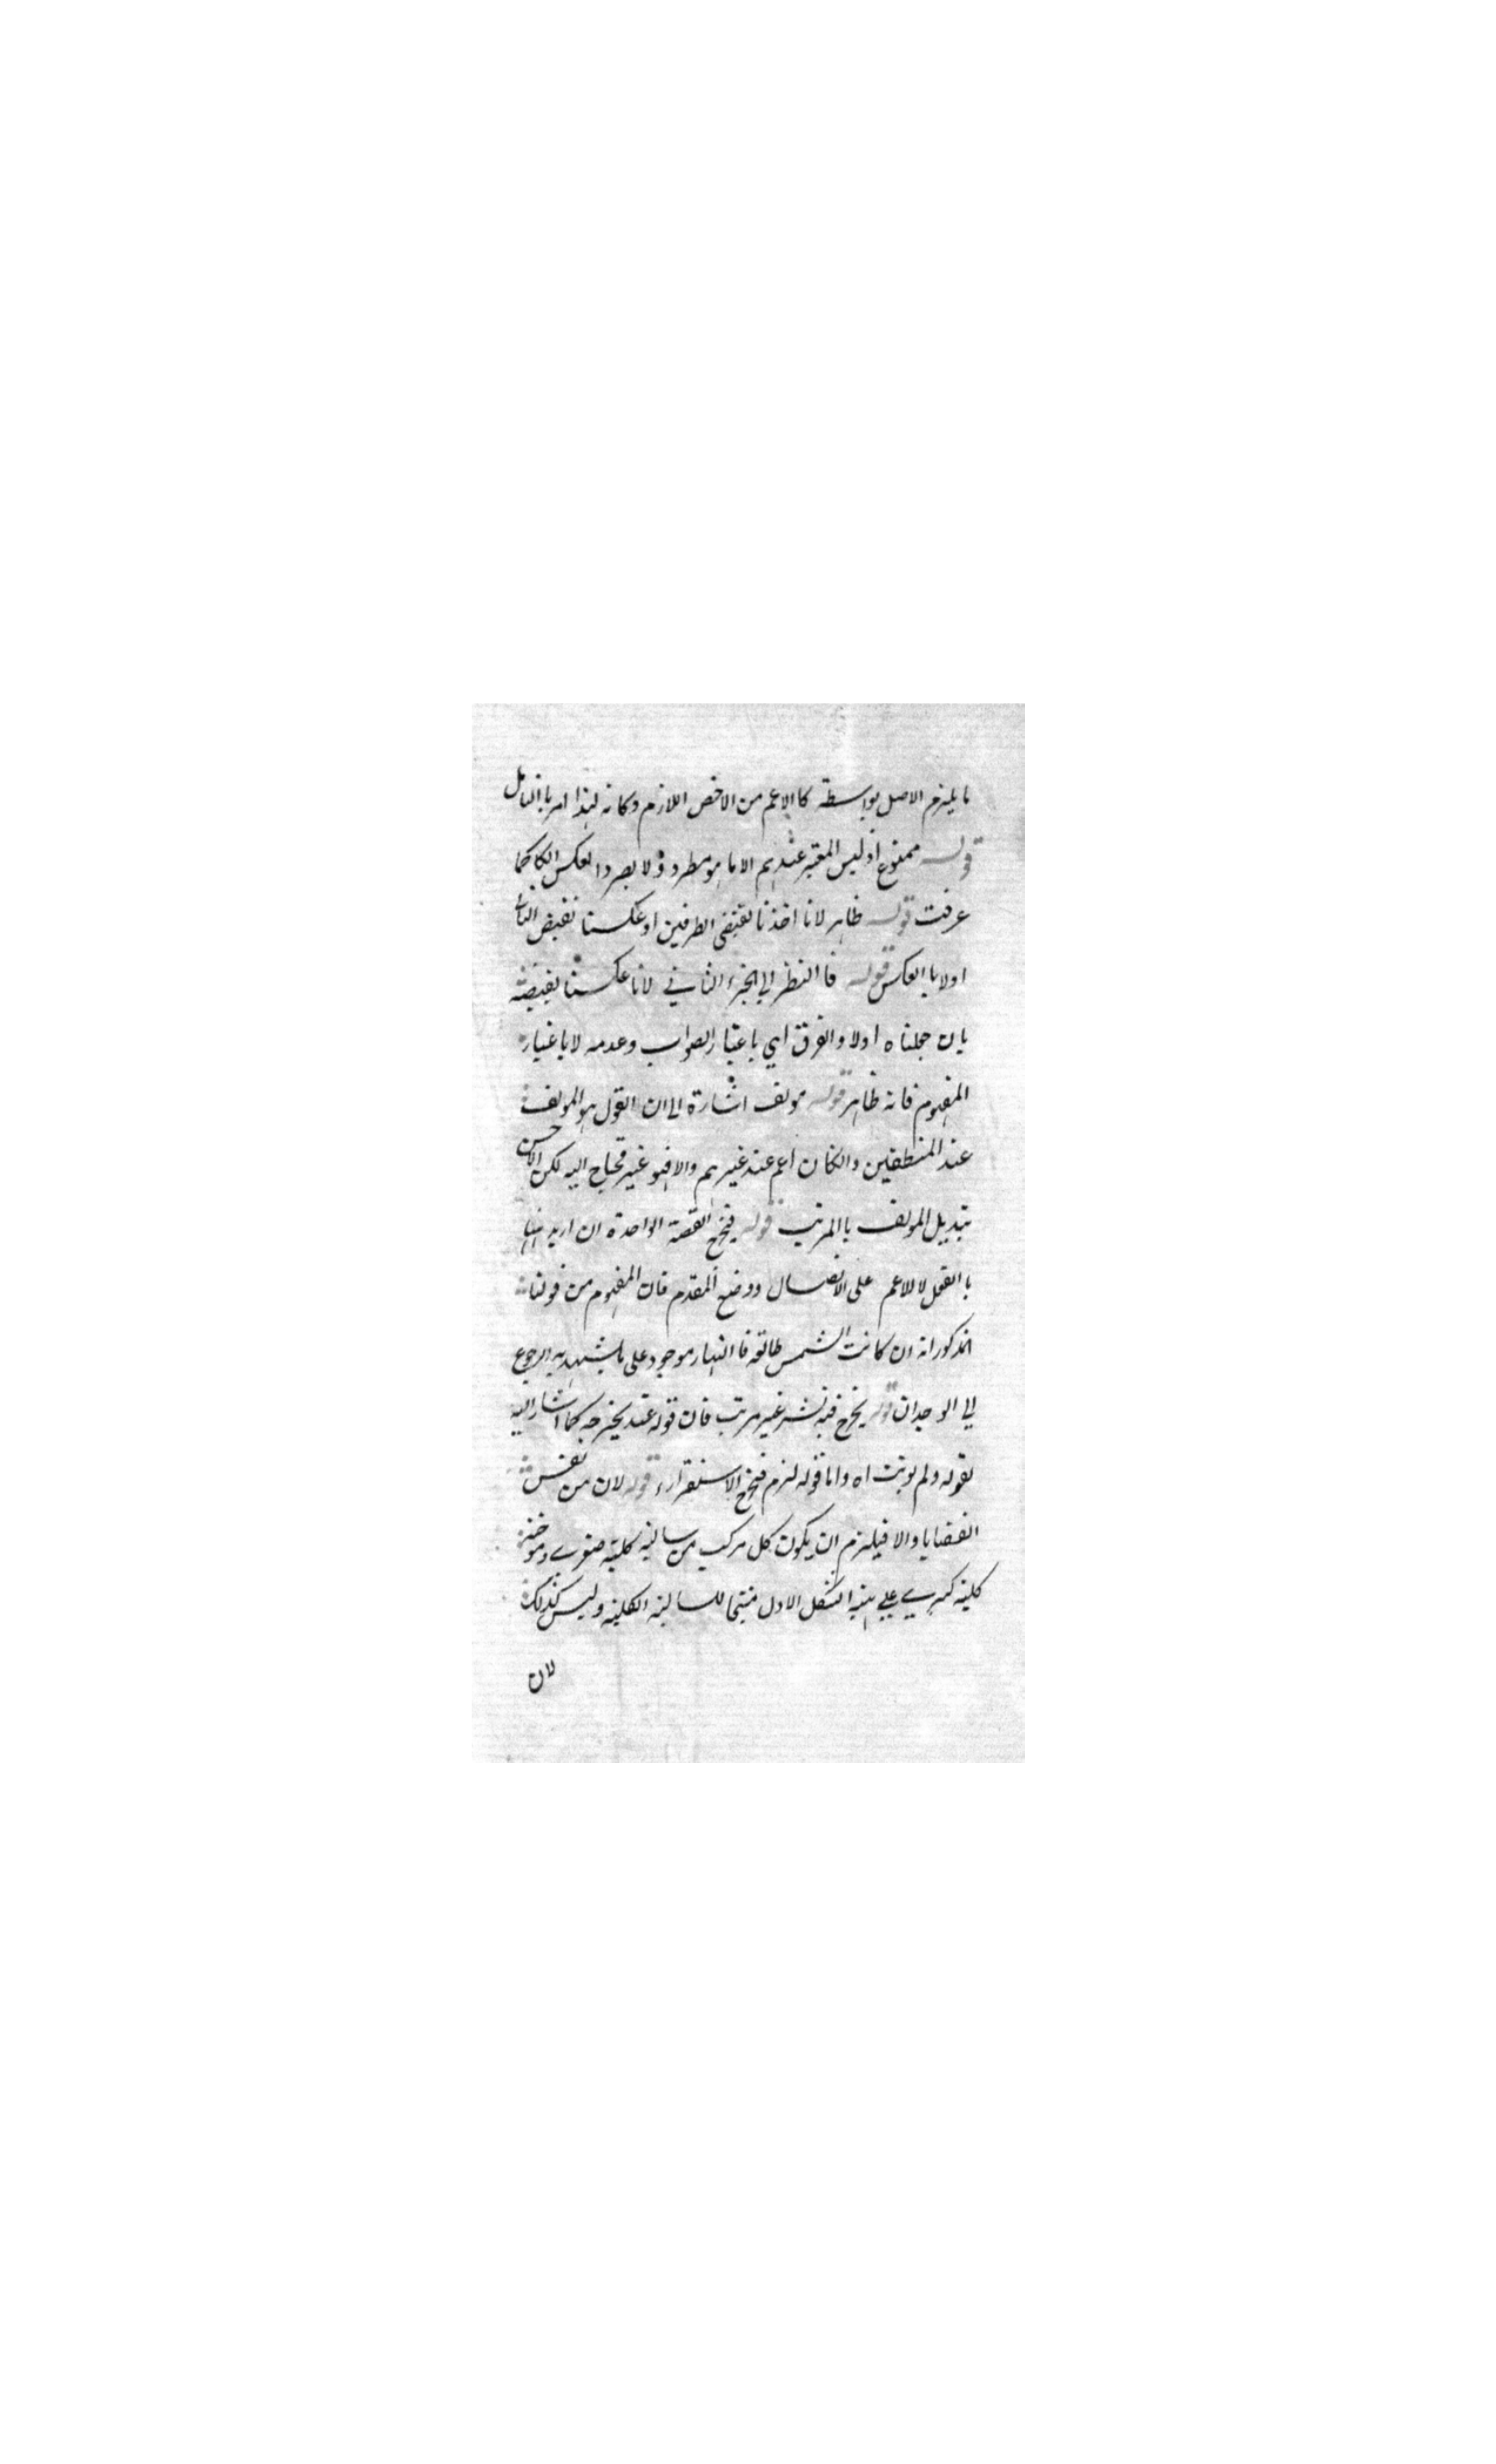 ما يلزم الاصل بواسطة كالاعم من الاخص اللازم وكانه لهذا امر بالتامل
قوله ممنوع اذ ليس المعتبر عندهم الا ما هو مطرد ولا يصر دا لعكس الكا كما
عرفت قوله ظاهر لانا اخذنا نقيضى الطرفين او عكسنا نقيض الثا
اولا بالعكس قوله فاالنظر الى الجزء الثاني لانا عكسنا نقيضه
بان جعلناه اولا والفرق اي باعتبار الصواب وعدمه لا باعتبار
المفهوم فانه ظاهر قوله مولف اشارة الى ان القول هو المولف
عند المنطقيين والكان اعم عند غيرهم والا فهو غير محتاج اليه لكن الاحسن
تبديل المولف باالمرتب قوله فيخرج القضية الواحدة ان اريد منها
باالفعل لا للاعم على الاتصال ووضع المقدم فان المفهوم من قولنا
المذكور انه ان كانت الشمس طالعة فاالنهار موجود على ما يشهد به الرجوع
الى الوجدان قوله يخرج فيه نشر غير مرتب فان قوله عنه يخرجه كما اشار اليه
بقوله ولم يوتبت اه واما قوله لزم فيخرج الاستقراء قوله لان من نفس
القضايا والا فيلزم ان يكون كل مركب من سالبة كلية صغرى وموجبة
كلية كبرى على هيئة الشكل الاول منتجا للسالبة الكلية وليس كذلك
لان